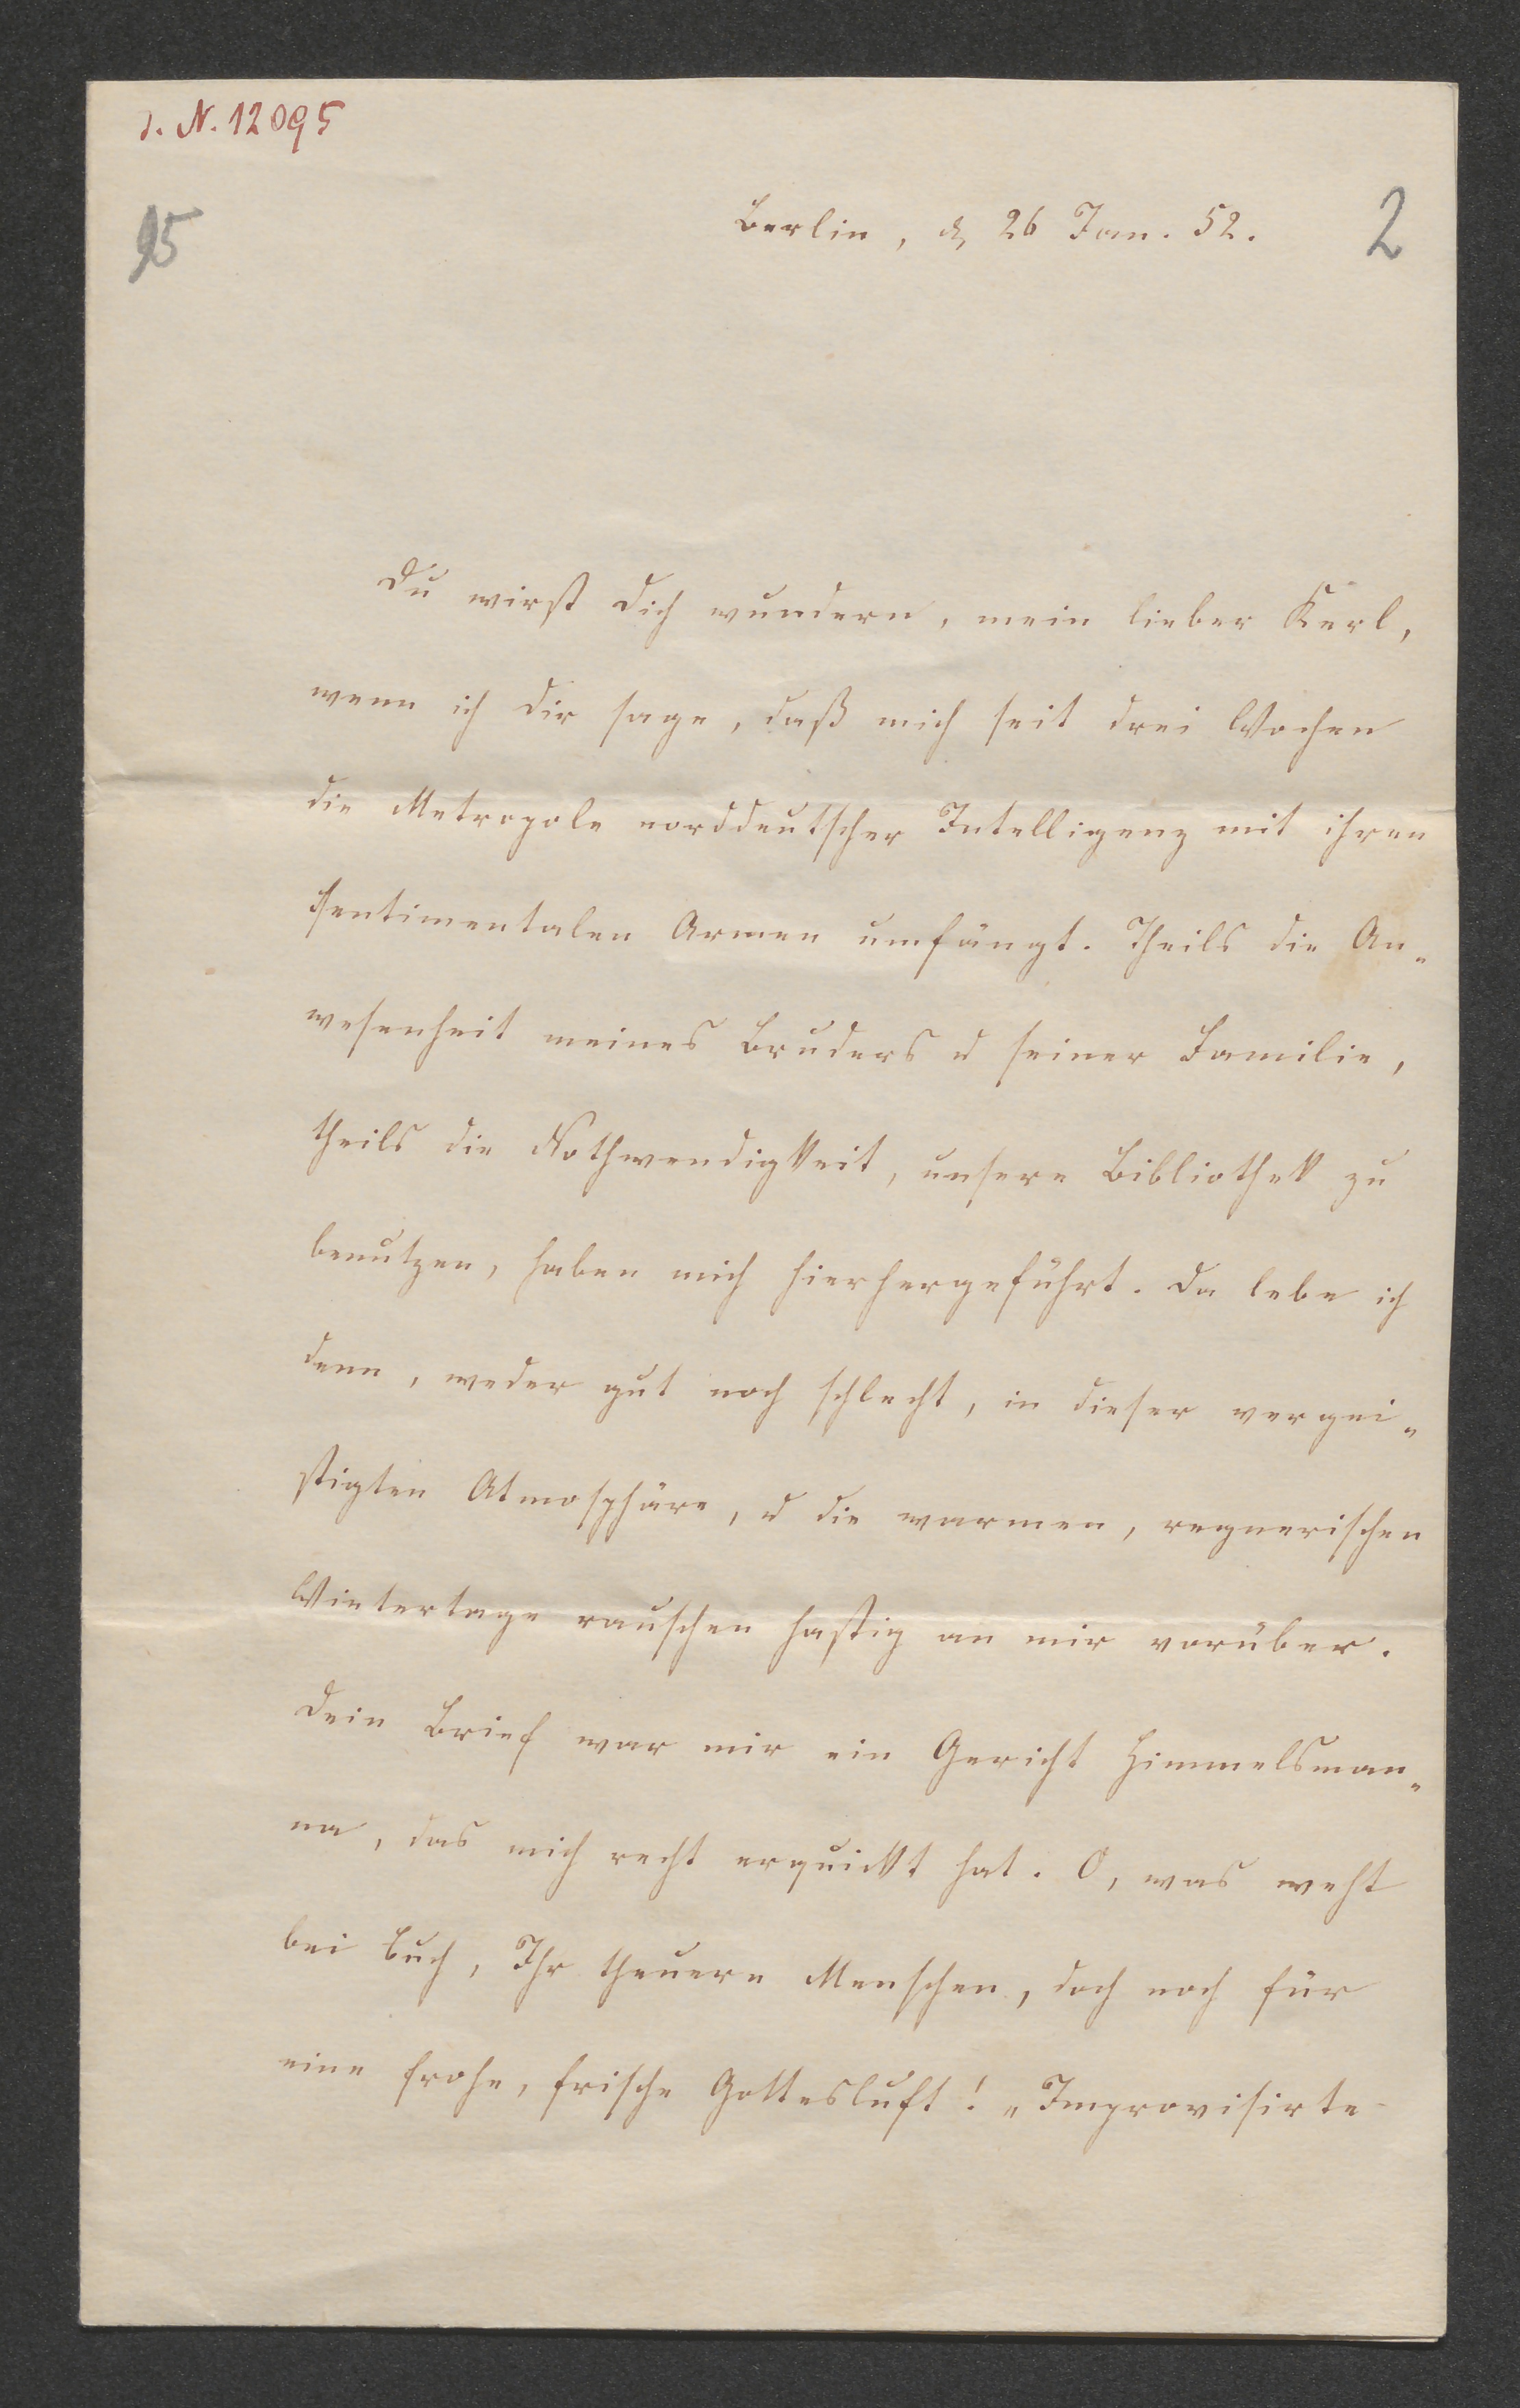 I. N. 12095
95
Berlin, d. 26 Jan. 52.
2
Du wirst Dich wundern, mein lieber Kerl,
wenn ich Dir sage, daß mich seit drei Wochen
die Metropole norddeutscher Intelligenz mit ihren
sentimentalen Armen umfängt. Theils die An-
wesenheit meines Bruders u seiner Familie,
theils die Nothwendigkeit, unsere Bibliothek zu
benutzen, haben mich hierhergeführt. Da lebe ich
denn, weder gut noch schlecht, in dieser vergei-
stigten Atmosphäre, u die warmen, regnerischen
Wintertage rauschen hastig an mir vorüber.
Dein Brief war mir ein Gericht Himmelsman-
na, das mich recht erquickt hat. O, was weht
bei Euch, Ihr theuern Menschen, doch noch für
eine frohe, frische Gottesluft! „Improvisirte